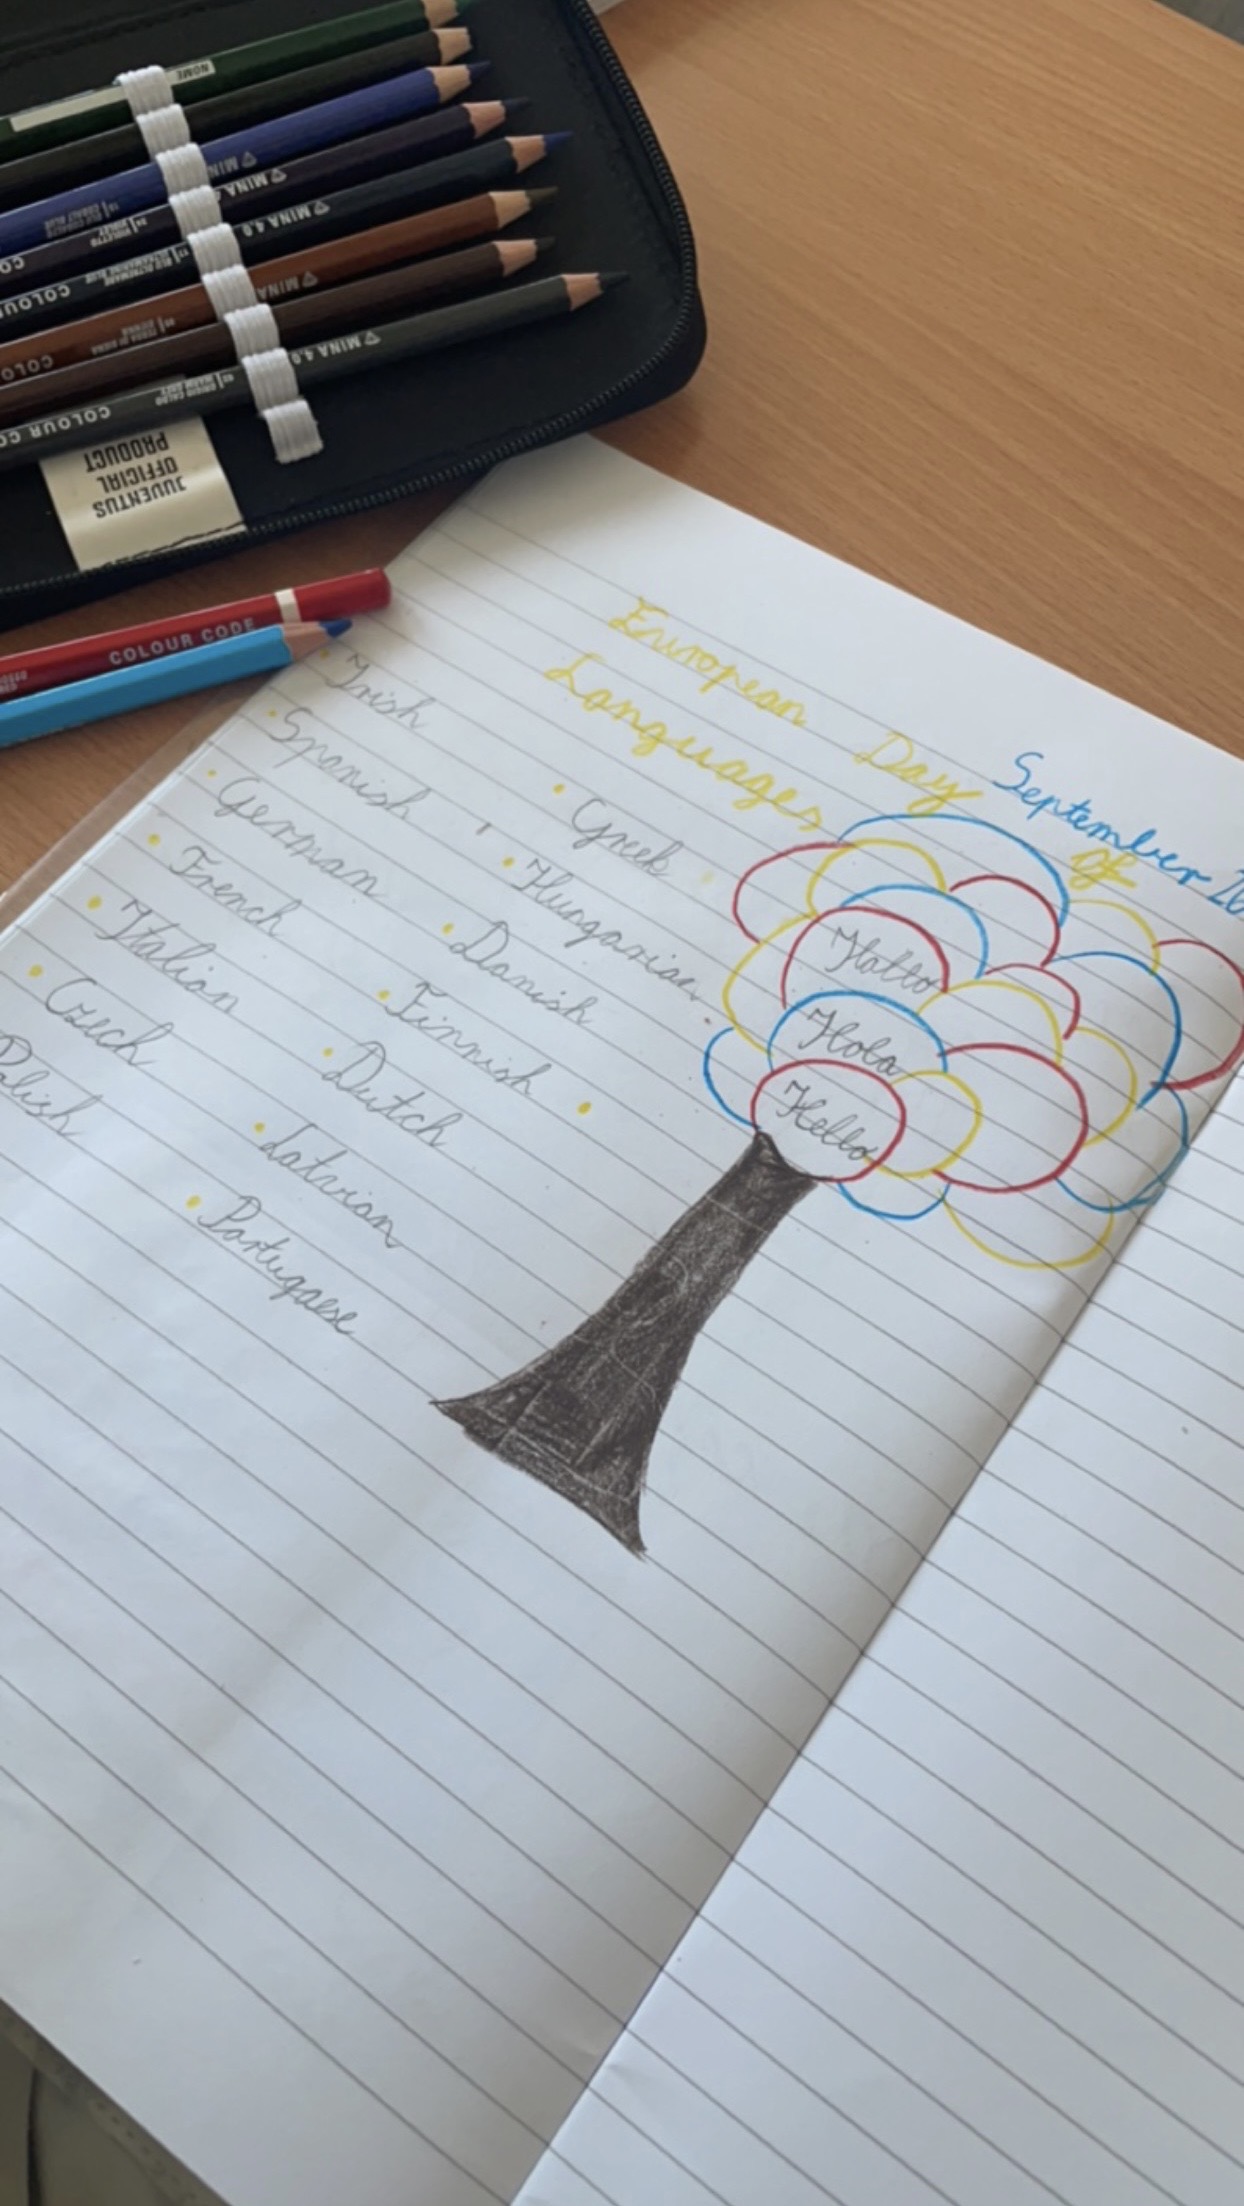 NOME
MINA
COBALT BLUE
MINA 4.0
VIOLETTO
VIOLET
MINA 4.0
ULTRAMARINE BLUE
COLOUR
MINA
COLO
MINA 4.0
COLOUR CO
JUVENTUS
OFFICIAL
PRODUCT
COLOUR CODE
European Day of
Languages
September 26
Irish
Spanish
German
French
Italian
Czech
Polish
Greek
Hungarian
Danish
Finnish
Dutch
Latvian
Portugaese
Hallo
Hola
Hello